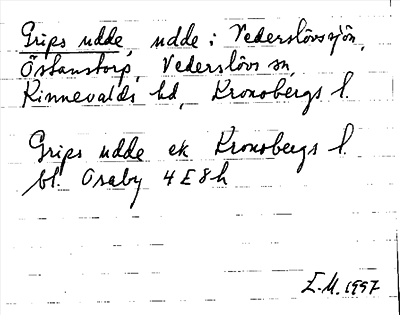 Grips udde, udde i Vederslövssjön,
Östanstorp, Vederslövs sn,
Kinnevalds hd, Kronobergs l.
Grips udde ek Kronobergs l.
bl. Osaby 4E8h
E.M. 1997